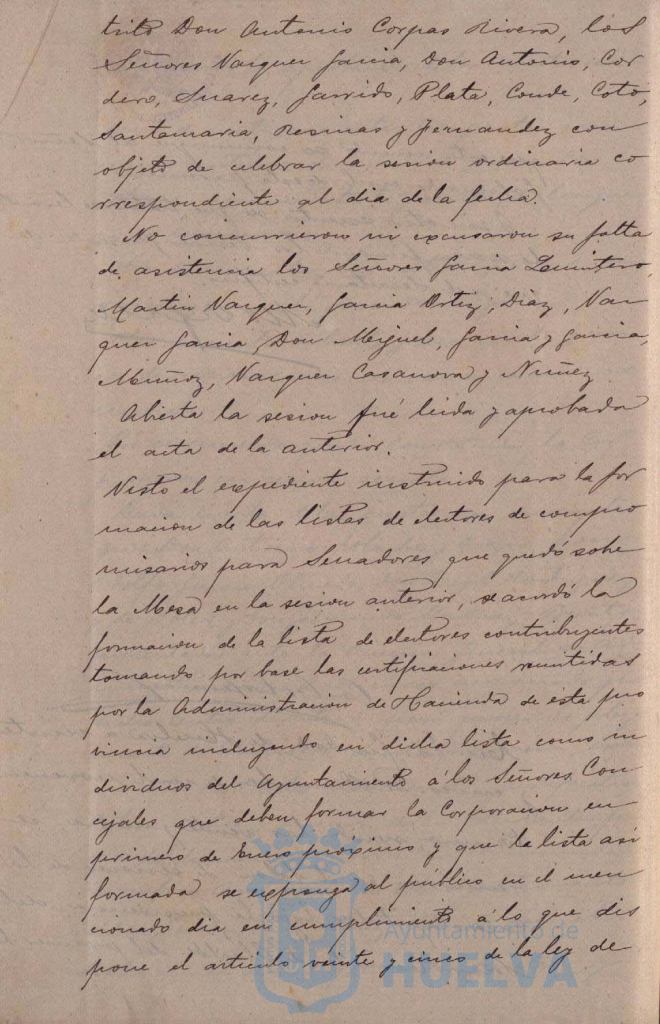 trito Don Antonio Corpas Rivera, los
Señores Vazquez Garcia, Don Antonio, Cor
dero, Suarez, Garrido, Plata, Conde, Coto,
Santamaria, Resinas y Fernandez con
objeto de celebrar la sesion ordinaria co
rrespondiente al dia de la fecha.
No concurrieron ni excusaron su falta
de asistencia los Señores Garcia Quintero,
Martin Vazquez, Garcia Ortiz, Diaz, Vaz
quez Garcia, Don Miguel, Garcia y Garcia,
Muñoz, Vazquez Casanova y Nuñez
Abierta la sesion fué leida y aprobada
el acta de la anterior.
Visto el expediente instruido para la for
macion de las listas de electores de compro
misarios para Senadores que quedó sobre
la Mesa en la sesion anterior, se acordó la
formacion de la lista de electores contribuyentes
tomando por base las certificaciones remitidas
por la Administracion de Hacienda de esta pro
vincia incluyendo en dicha lista como in
dividuos del Ayuntamiento á los Señores Con
cejales que deben formar la Corporacion en
primero de Enero próximo y que la lista asi
formada se exponga al publico en el men
cionado dia en cumplimiento á lo que dis
pone el articulo veinte y cinco de la ley de
Ayuntamiento de
HUELVA